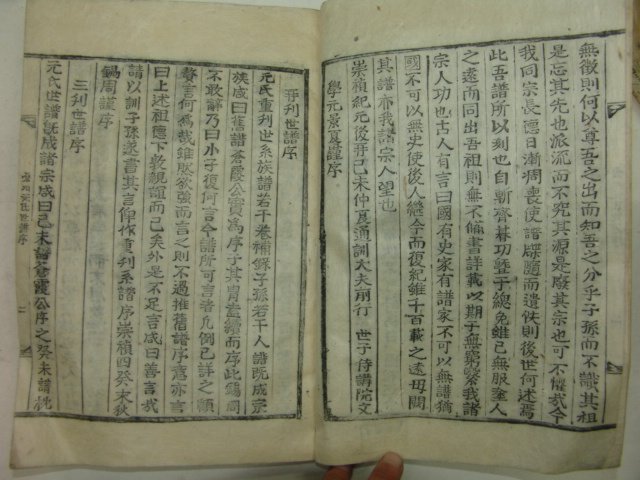 無徵則何以尊吾之出而知吾之分乎子孫而不識其祖
是忘其先也派流而不究其源是廢其宗也可不懼哉今
我同宗長德日漸凋喪使譜牒隨而遺佚則後世何述焉
此吾譜所以刻也自斬齊朞功曁于緦免雖已無服奎人
之遠而同出吾祖則無不備書詳載以期子無窮繄我諸
宗人功也古人有言曰國有史家有譜家不可以無譜猶
國不可以無史使後人繼今而復紀雖千百載之遠毋闕
其譜亦我諸宗人望也
崇禎紀元後再己未仲夏通訓大夫前行 世子侍講院文
學元景夏謹序
再刋世譜序
元氏重刋世系族譜若干卷補錄子孫若干人譜旣成宗
族咸曰舊譜蒼霞公實爲序子其胄盍續而序此錫周
不敢辭乃曰小子復何言今譜所可言者凡倒已詳之顧
贅言何爲哉雖然欲強而言之則不過推舊譜序意亦言
曰上述祖德下敦親誼而已矣外是不足言咸曰善言哉
請以訓子孫遂書其言俾作重刋系譜序崇禎四癸未秋
錫周謹序
三刋世譜序
元氏世譜旣成諸宗咸曰己未譜蒼霞公序之癸未譜忱